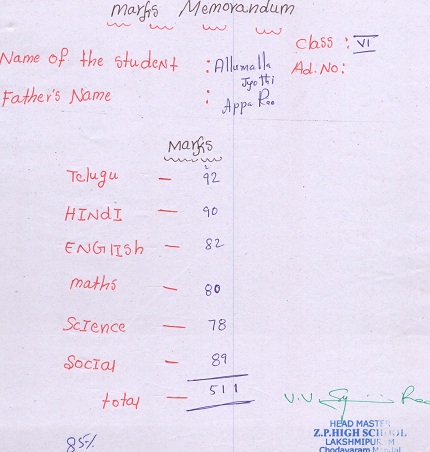 Marks Memorandum
Class : VI
Name of the student : Allumalla Jyothi
Ad. No:
Father's Name : Appa Rao
Marks
Telugu — 92
HINdI — 90
ENGlISh — 82
maths — 80
Science — 78
Social — 89
total — 511
85%
V.V
HEAD MASTER
Z.P.HIGH SCHOOL
LAKSHMIPURAM
Chodavaram Mandal